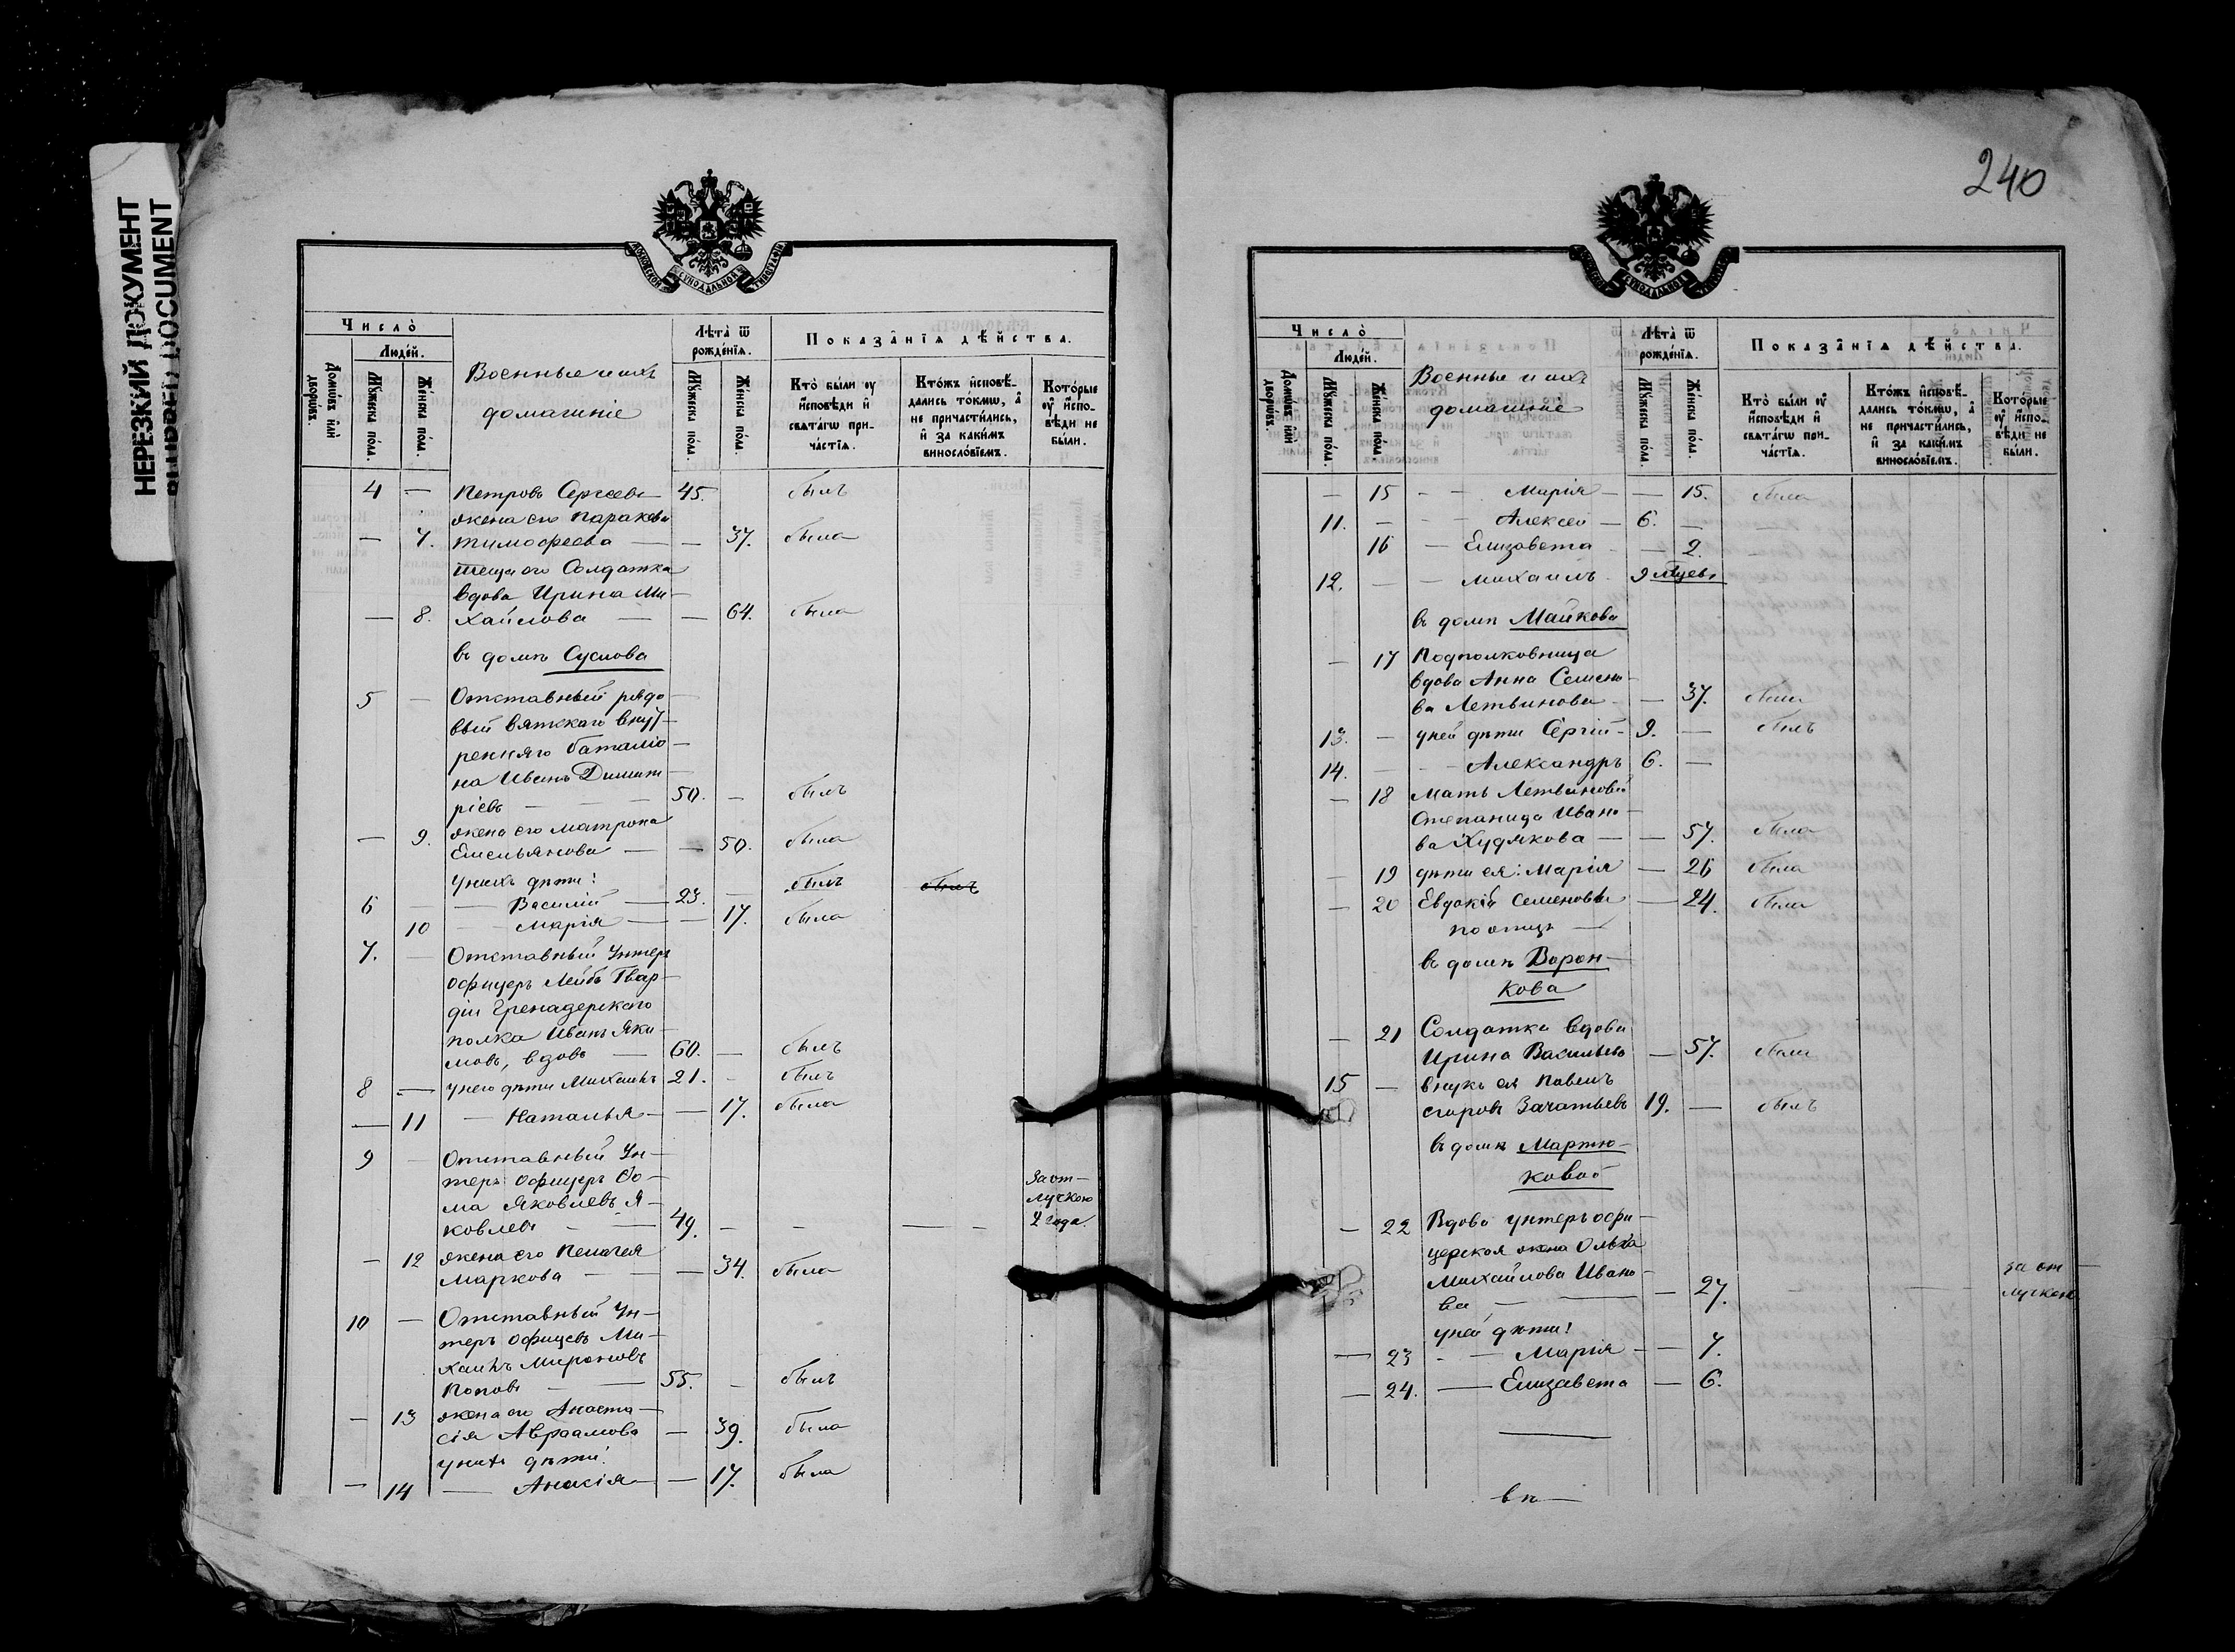 НЕРЕЗКИЙ ДОКУМЕНТ
BLURRED DOCUMENT
МОСКОВСКОЙ СѴНОДАЛЬНОЙ ТИПОГРАФІИ
Число̀
Люде́й.
Домѡ́въ и҆лѝ дворѡ́въ.
Мꙋ́жеска по́ла.
Же́нска по́ла.
Военные и ихъ
домашніе
Лѣ́та ѿ рожде́нїѧ.
Мꙋ́жеска по́ла.
Же́нска по́ла.
Показа̑нїѧ дѣ́йства.
Кто̀ бы́ли ᲂу҆
и҆спо́вѣди и҆
свѧта́гѡ при-
ча́стїѧ.
Кто́жъ и҆сповѣ́-
дались то́кмѡ, а҆
не причасти́лись,
и҆ за каки́мъ
виносло́вїемъ.
Кото́рые
ᲂу҆ и҆спо-
вѣди не
бы́ли.
4 — Петровъ Сергѣевъ 45. былъ
жена его Параскева
— 7. Тимофеева — — 37. была
теща его Солдатка
вдова Ирина Ми-
— 8. хайлова — — 64. была
въ домѣ Суслова
5 — Отставный рядо-
вый Вятскаго внут-
ренняго баталіо-
на Иванъ Димит-
ріевъ — 50. — былъ
— 9. жена его Матрона
Емельянова — — 50. была
у нихъ дѣти:
6 — — Василій — 23. — былъ былъ
10 — Марія — — 17. была
7. — Отставный Унтеръ
офицеръ Лейбъ Гвар-
діи Гренадерскаго
полка Иванъ Яки-
мовъ, вдовъ — 60. — былъ
8 — у него дѣти Михаилъ 21. - былъ
— 11 — Наталья — — 17. была
9 — Отставный Ун-
теръ офицеръ Ѳо-
ма Яковлевъ Я-
ковлевъ — 49. — — — — за от-
лучкою
2 года.
— 12 жена его Пелагея
Маркова — — 34. была
10 — Отставный Ун-
теръ офицеръ Ми-
хаилъ Мироновъ
Поповъ — 55. - былъ
— 13 жена его Анаста-
сія Авраамова — 39. была
у нихъ дѣти:
— 14 — Анисія — — 17. была
240
МОСКОВСКОЙ СѴНОДАЛЬНОЙ ТИПОГРАФІИ
Число̀
Люде́й.
Домѡ́въ и҆лѝ дворѡ́въ.
Мꙋ́жеска по́ла.
Же́нска по́ла.
Военные и ихъ
домашніе
Лѣ́та ѿ рожде́нїѧ.
Мꙋ́жеска по́ла.
Же́нска по́ла.
Показа̑нїѧ дѣ́йства.
Кто̀ бы́ли ᲂу҆
и҆спо́вѣди и҆
свѧта́гѡ при-
ча́стїѧ.
Кто́жъ и҆сповѣ́-
дались то́кмѡ, а҆
не причасти́лись,
и҆ за каки́мъ
виносло́вїемъ.
Кото́рые
ᲂу҆ и҆спо-
вѣди не
бы́ли.
— 15 - - Марія — — 15. была
11. — - Алексей — 6. —
16 — Елизавета - — 2.
12. — - Михаилъ - 9 мцевъ
въ домѣ Майкова
— 17 Подполковница
вдова Анна Семено-
ва Летвинова — — 37. была
13. — у ней дѣти Сергій - 9. — былъ
14. — - Александръ 6. —
— 18 Мать Летвиновой
Степанида Ивано-
ва Худякова — — 57. была
— 19 дѣти ея: Марія — 26 была
— 20 Евдокія Семеновы — 24. была
по отцу —
въ домѣ Ворон-
кова
— 21 Солдатка вдова
Ирина Васильева — 57. была
15 — внукъ ея Павелъ
Егоровъ Зачатьевъ 19. — былъ
въ домѣ Мартю-
ковой
— 22 Вдова унтеръ офи-
церская жена Ольга
Михайлова Ивано-
ва — — 27. — за от-
лучкою
у ней дѣти:
— 23 - — Марія — — 7.
— 24. — Елизавета — 6.
въ —